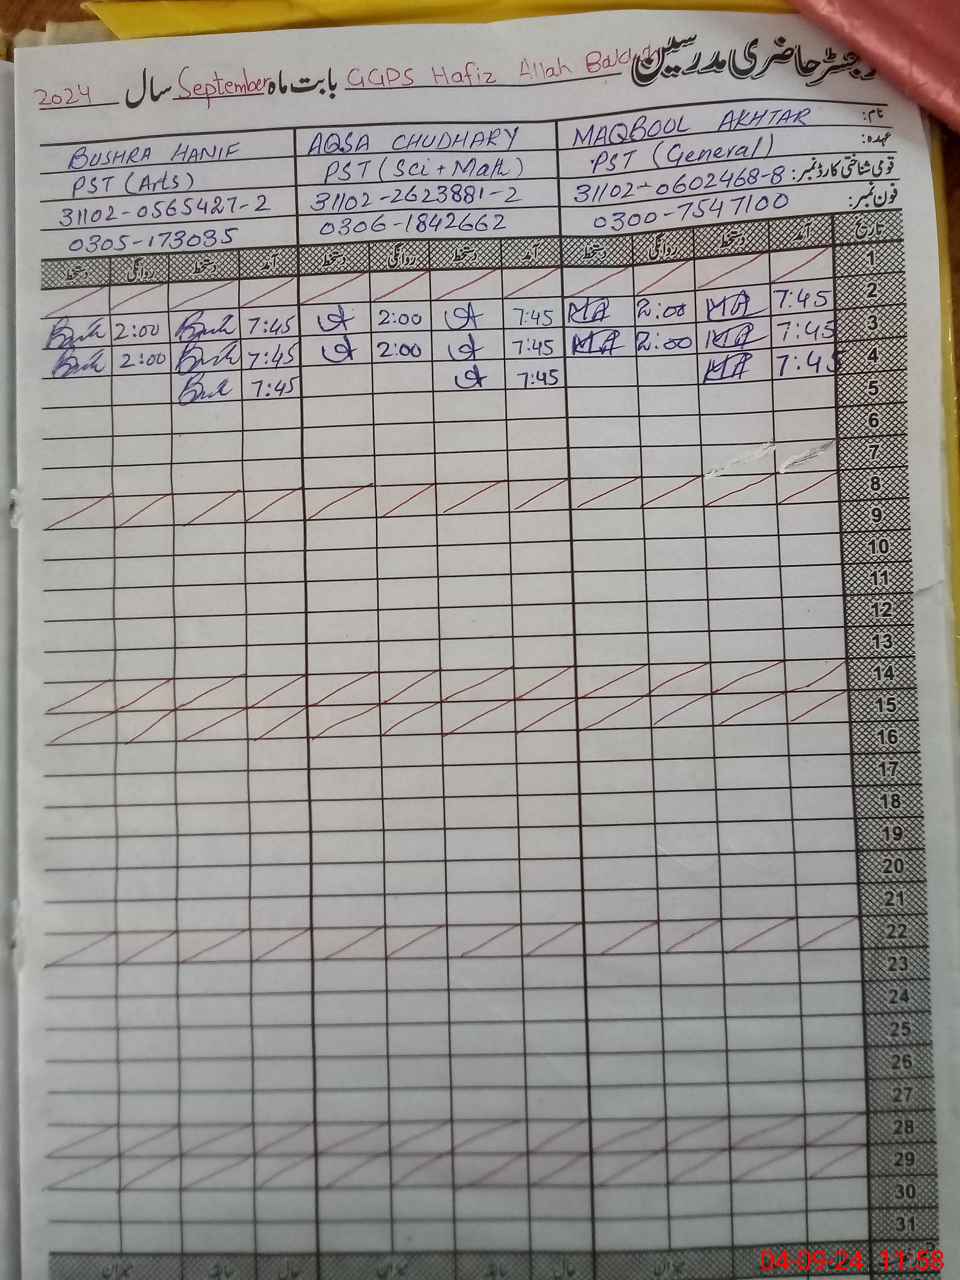 رجسٹر حاضری مدرسین GGPS Hafiz Allah بابت ماہ September سال 2024
نام: MAQBOOL AKHTAR AQSA CHUDHARY BUSHRA HANIF
عہدہ: PST (General) PST (Sci + Math) PST (Arts)
قومی شناختی کارڈ نمبر: 31102-0602468-8 31102-2623881-2 31102-0565427-2
فون نمبر: 0300-7547100 0306-1842662 0305-173085
تاریخ آمد دستخط روانگی دستخط آمد دستخط روانگی دستخط آمد دستخط روانگی دستخط
1
2 7:45 MA 2:00 MA 7:45 2:00 7:45 Bush 2:00 Bush
3 7:45 MA 2:00 MA 7:45 2:00 7:45 Bush 2:00 Bush
4 7:45 MA 7:45 7:45 Bush
5
6
7
8
9
10
11
12
13
14
15
16
17
18
19
20
21
22
23
24
25
26
27
28
29
30
31
میزان سابقہ حال میزان سابقہ حال میزان
04-09-24 11:58